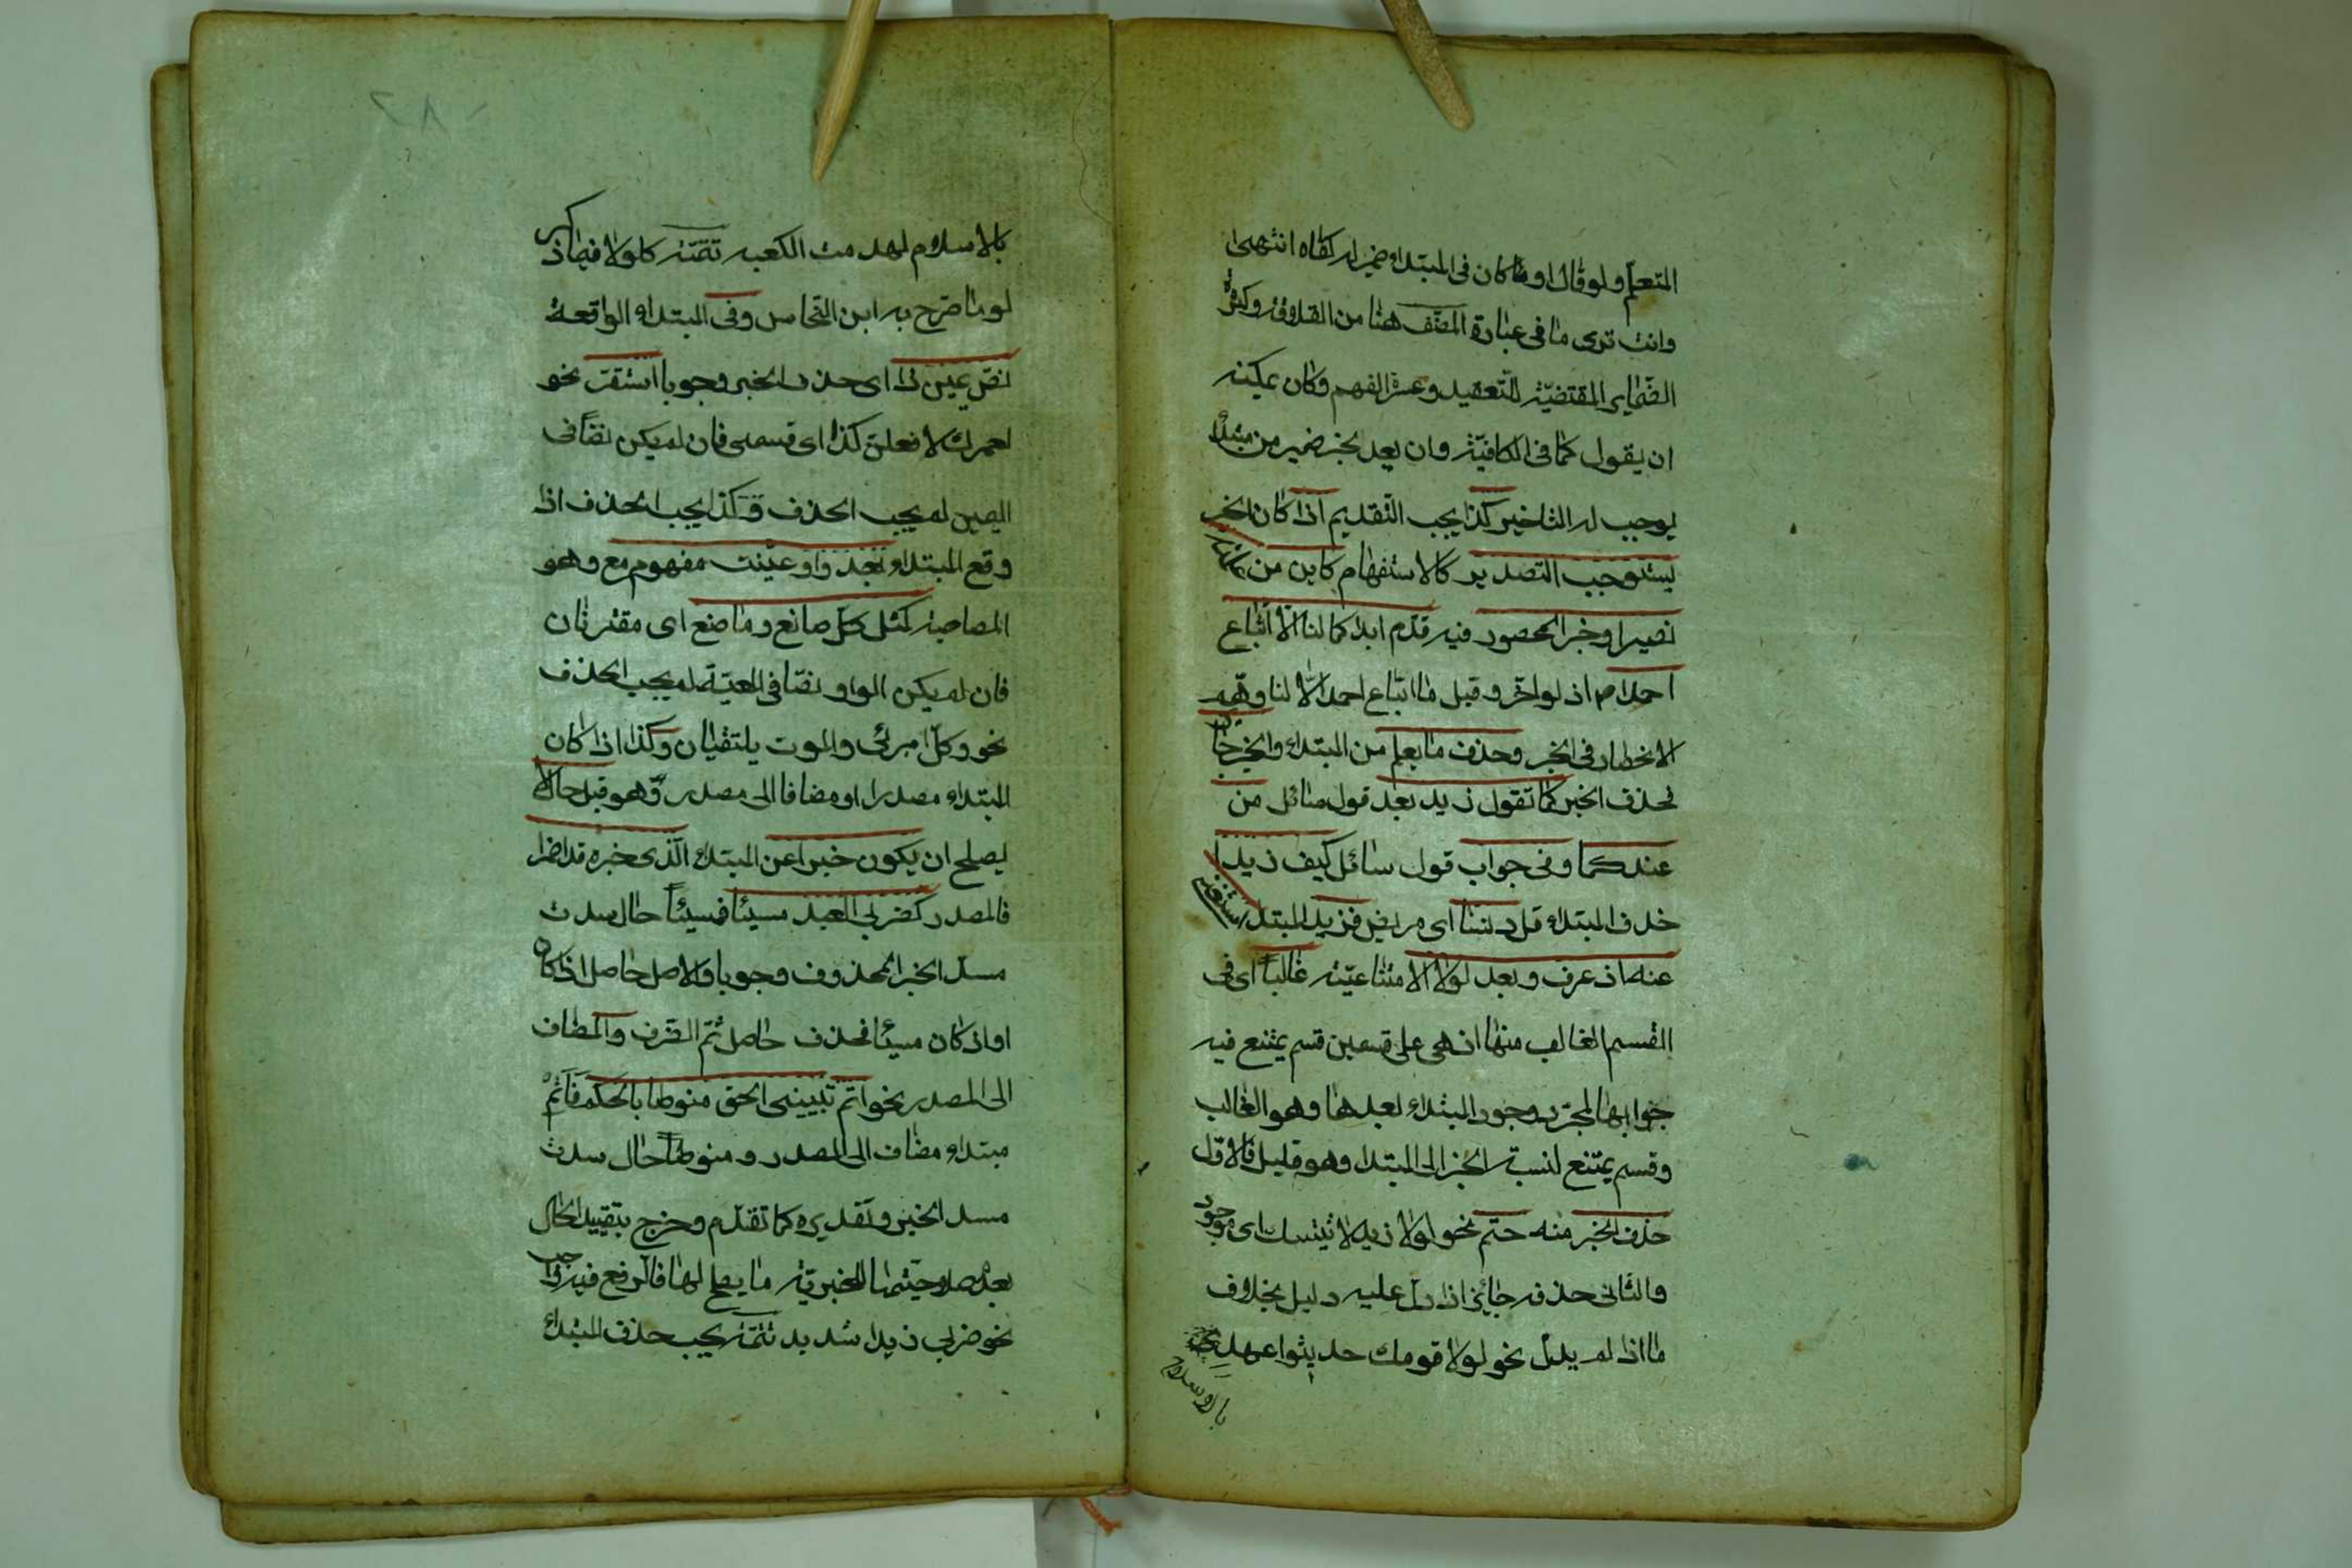 المتعلم ولو قال او ما كان فى المبتداء ضمير له كفاه انتهى
وانت ترى ما فى عبارة المصنف هنا من القلاقة وكثرة
الضماير المقتضية للتعقيد وعسر الفهم وكان يمكنه
ان يقول كما فى الكافية وان يعد لخبر ضمير من مبتدأ
يوجب له التاخير كذا يجب التقديم اذا كان الخبر
يستوجب التصدير كالاستفهام كاين من علمته
نصيرا وخبر المحصور فيه قدم ابدا كما لنا الا اتباع
احمدا ص اذ لو اخر وقيل ما اتباع احمد الا لنا وهم
الانحصار فى الخبر وحذف ما يعلم من المبتداء والخبر جائز
فحذف الخبر كما تقول زيد بعد قول سائل من
عندكما وفى جواب قول سائل كيف زيد ا
حذف المبتداء قل دنثا اى مريض فزيد المبتدا استغنى
عنه اذ عرف وبعد لولا الامتناعيّة غالبا اى فى
القسم الغالب منها اذ هى على قسمين قسم يمتنع فيه
جوابها لمجرد وجود المبتداء بعدها وهو الغالب
وقسم يمتنع لنسبة الخبر الى المبتدا وهو قليل فالاول
حذف الخبر منه حتم نحو لولا زيد لاتيتك اى موجود
والثانى حذفه جائز اذا دل عليه دليل بخلاف
ما اذا لم يدل نحو لولا قومك حديثوا عهد
بالاسلام
بالاسلام لهدمت الكعبه تتمّة كلولا فيما ذكر
لو ما صرح به ابن النحاس وفى المبتداء الواقعة
نصّ يمين ذا اى حذف الخبر وجوبا استقر نحو
لعمرك لافعلن كذا اى قسمى فان لم يكن نصّا فى
اليمين لم يجب الحذف وكذا يجب الحذف اذا
وقع المبتداء بعد واو عيّنت مفهوم مع وهو
المصاحبة كمثل كل صانع وما صنع اى مقترنان
فان لم يكن الواو نصّا فى المعيّة لم يجب الحذف
نحو وكل امرئى والموت يلتقيان وكذا اذا كان
المبتداء مصدرا او مضافا الى مصدر وهو قبل حال لا
يصلح ان يكون خبرا عن المبتداء الذى خبره قد اضمرا
فالمصدر كضربى العبد مسيئا فمسيئا حال سدت
مسد الخبر المحذوف وجوبا والاصل حاصل اذا كان
او اذ كان مسيئا فحذف حاصل ثم الظرف والمضاف
الى المصدر نحو اتم تبيينى الحق منوطا بالحكم فاتم
مبتداء مضاف الى المصدر ومنوطا حال سدت
مسد الخبر وتقديره كما تقدم وخرج بتقييد الحال
بعدم صلاحيتها للخبرية ما يصلح لها فالرفع فيه واجب
نحو ضربى زيدا شديد تتمّة يجب حذف المبتداء